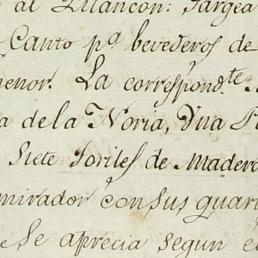 al Zilancon: Targea
Canto p.ª bevederos de
menor. La correspond.te
a de la Noria, Vna
Siete Toriles de Madera
mirador con sus guar
e Se aprecia segun e